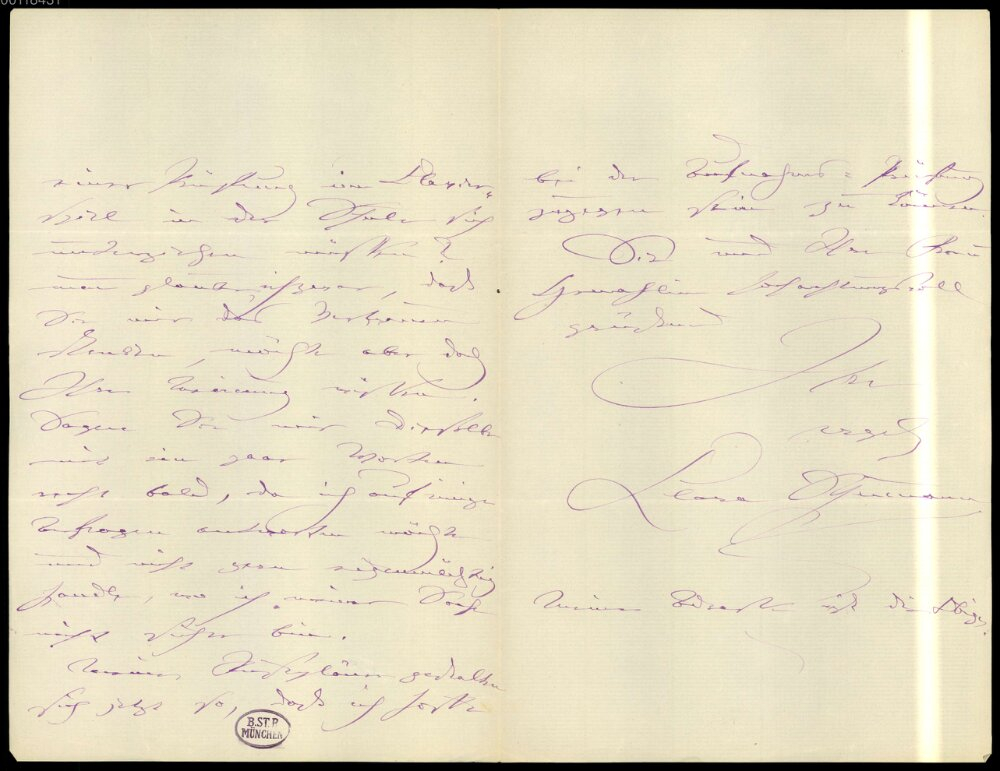 einer Prüfung im Clavier-
spiel in der Schule sich
unterziehen müßten?
man glaubt, daß
Sie mir das Vertrauen
schenken, möchte aber doch
Ihre Meinung wissen.
Sagen Sie mir dieselbe
mit ein paar Worten
recht bald, da ich auf einige
Anfragen antworten möchte
und nicht gern eigenmächtig
handle, wo ich meiner Sache
nicht sicher bin.
Meine gestalten
sich jetzt so, daß ich hoffe
bei der Aufnahms-Prüfung
zugegen sein zu können.
Sie und Ihre Frau
Gemahlin hochachtungsvoll
grüßend
Ihre
ergeb.
Clara Schumann
Meine Adresse ist die Obige.
B.ST.B.
MÜNCHEN